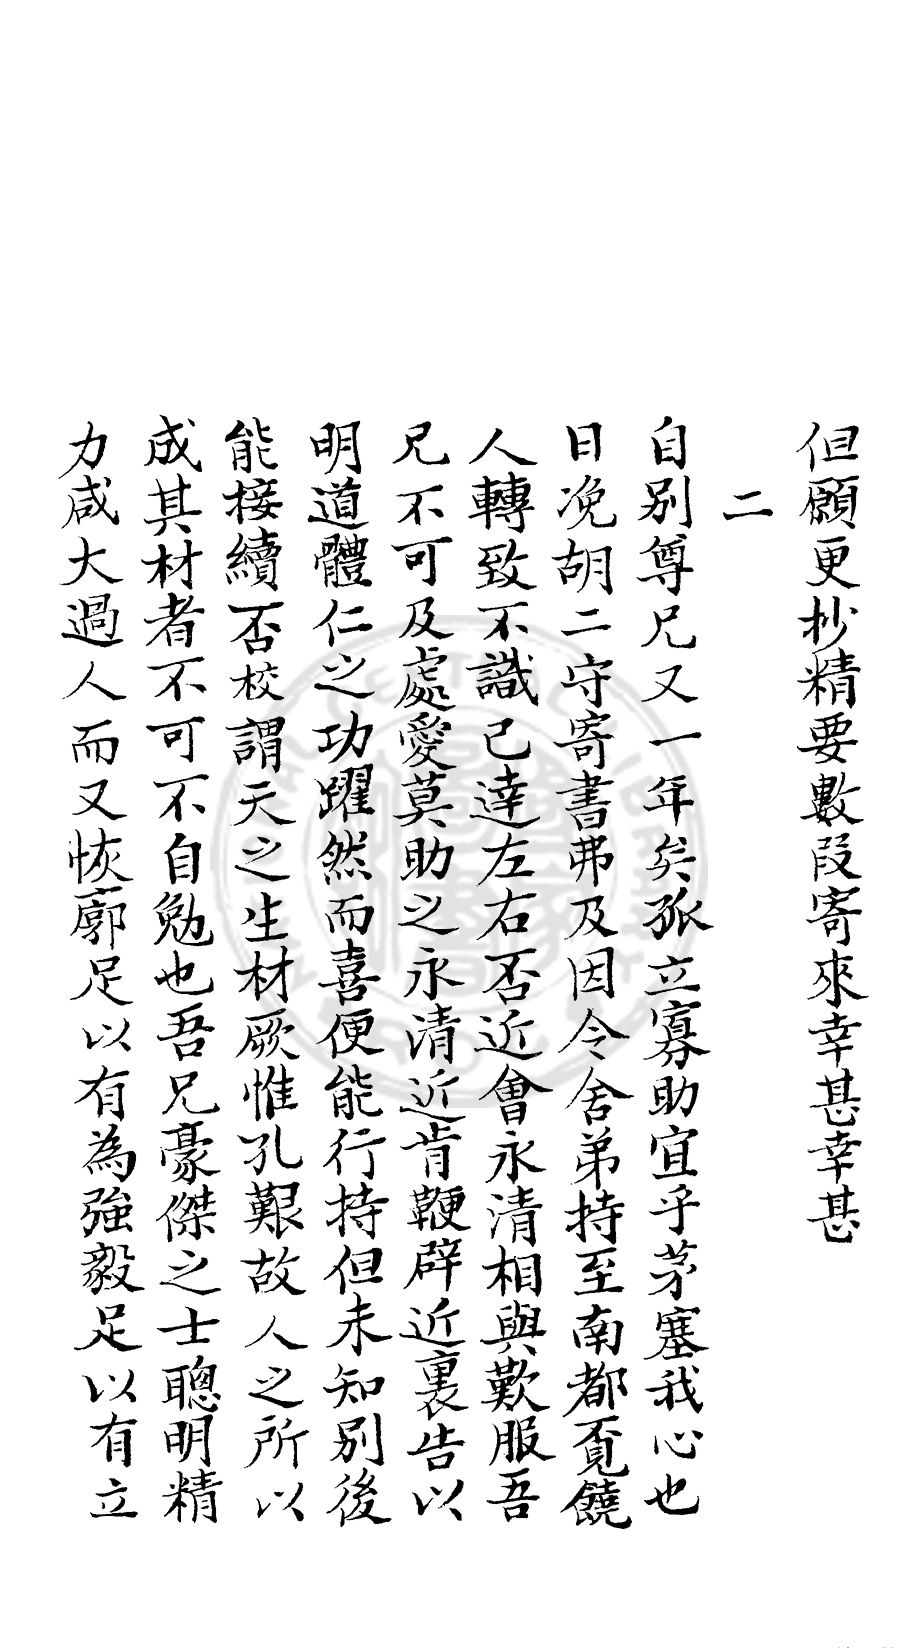 但願更抄精要數段寄來幸甚幸甚
二
自别尊兄又一年矣孤立寡助宜乎茅塞我心也
日浼胡二守寄書弗及因令舍弟持至南都覔饒
人轉致不識已逹左右否近會永清相與歎服吾
兄不可及處愛莫助之永清近肯鞭辟近裏告以
明道體仁之功躍然而喜便能行持但未知别後
能接續否校謂天之生材厥惟孔艱故人之所以
成其材者不可不自勉也吾兄豪傑之士聰明精
力咸大過人而又恢廓足以有為強毅足以有立